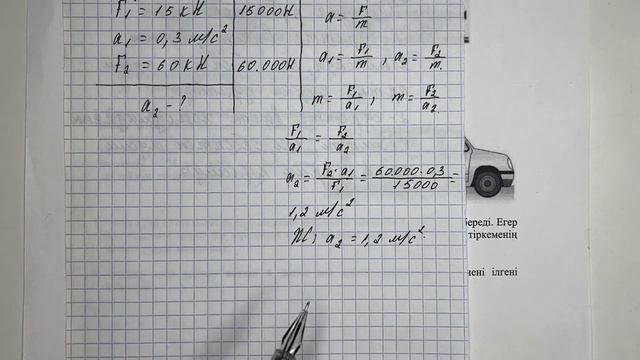 F₁ = 15 кН 15000Н
a₁ = 0,3 м/с²
F₂ = 60 кН 60.000Н
a₂ - ?
a = F/m
a₁ = F₁/m , a₂ = F₂/m.
m = F₁/a₁ ; m = F₂/a₂.
F₁/a₁ = F₂/a₂
a₂ = F₂·a₁/F₁ = 60.000·0,3/15000 =
1,2 м/с²
Ж: a₂ = 1,2 м/с².
береді. Егер
тіркеменің
ілгені